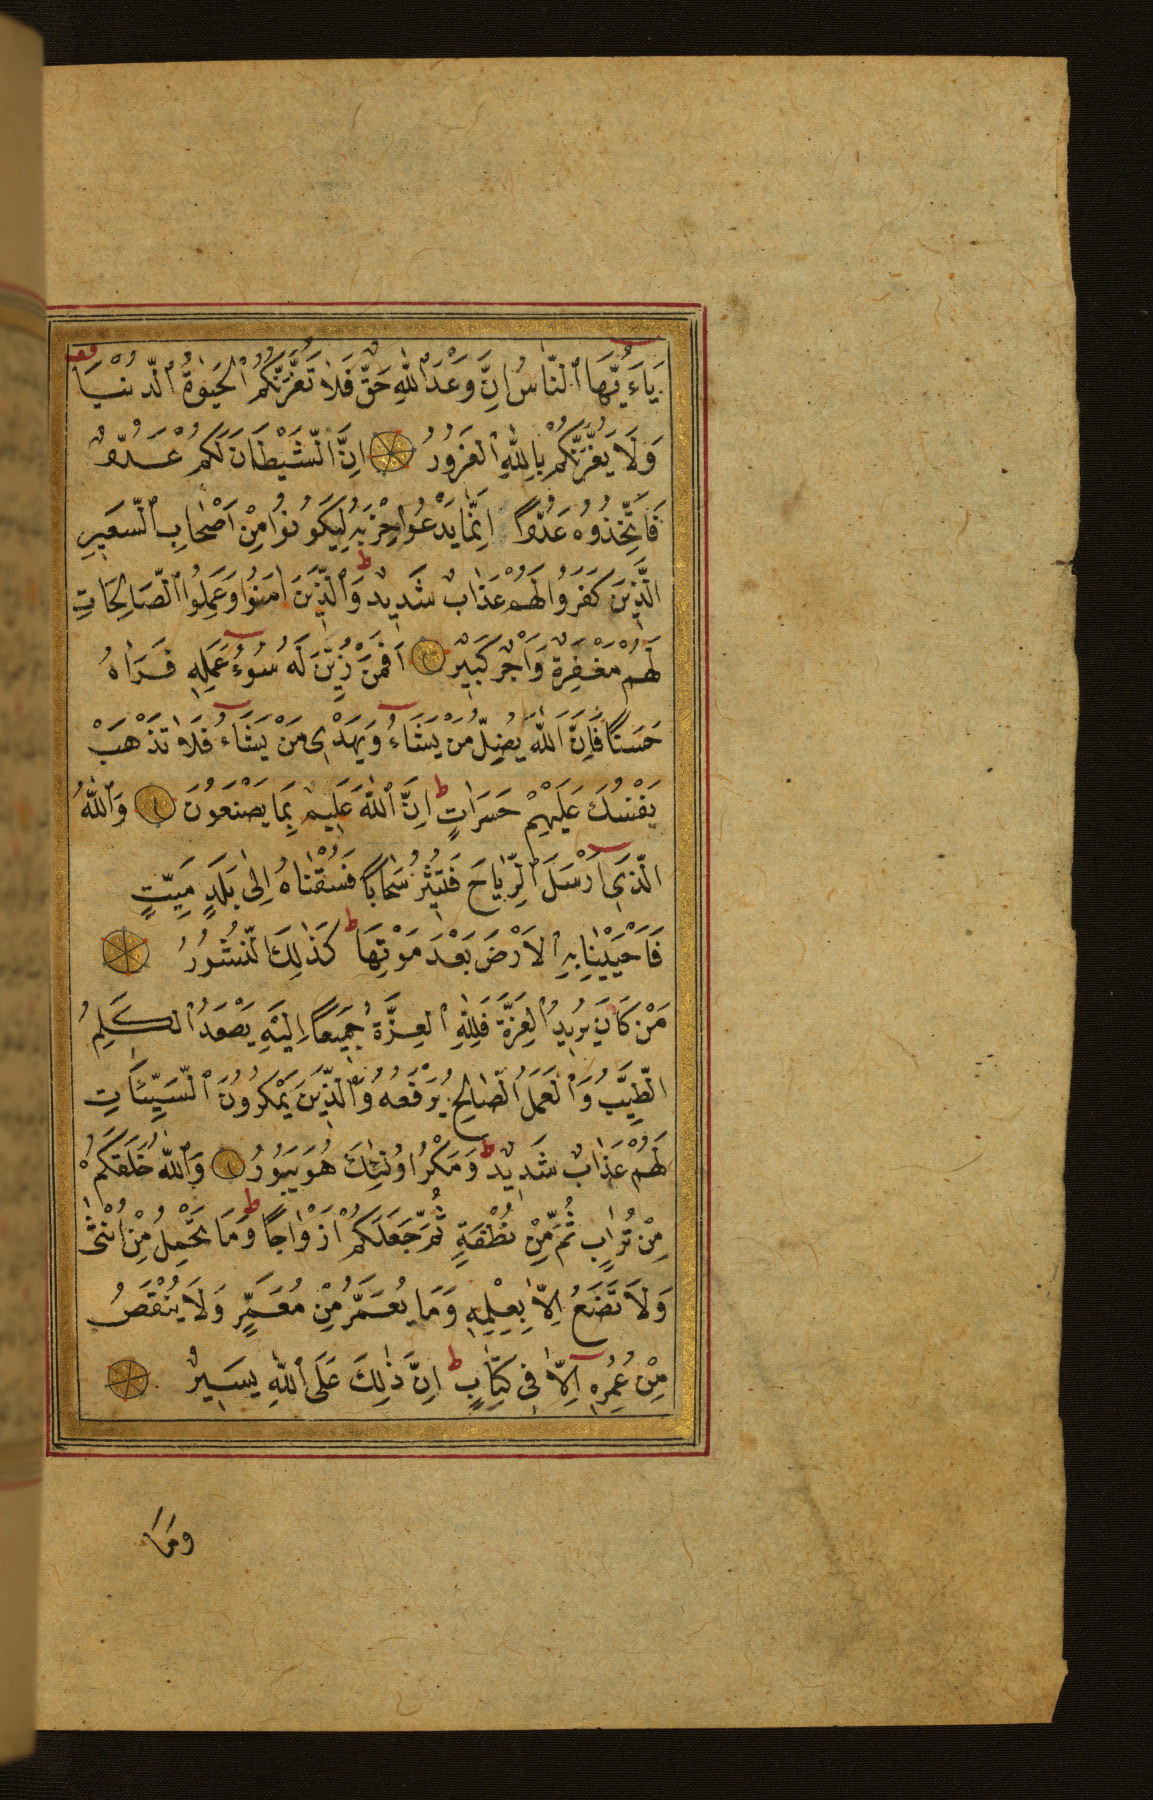 يَاءَيُّهَا ٱلنَّاسُ اِنَّ وَعْدَ ٱللّٰهِ حَقٌّ فَلَا تَغُرَّنَّكُمُ ٱلْحَيٰوةُ ٱلدُّنْيَا
وَلَا يَغُرَّنَّكُمْ بِاللّٰهِ ٱلْغَرُورُ اِنَّ ٱلشَّيْطَانَ لَكُمْ عَدُوٌّ
فَاتَّخِذُوهُ عَدُوًّا اِنَّمَا يَدْعُوا حِزْبَهُ لِيَكُونُوا مِنْ اَصْحَابِ ٱلسَّعِيرِ
الَّذِينَ كَفَرُوا لَهُمْ عَذَابٌ شَدِيدٌ ط وَالَّذِينَ اٰمَنُوا وَعَمِلُوا ٱلصَّالِحَاتِ
لَهُمْ مَغْفِرَةٌ وَاَجْرٌ كَبِيرٌ اَفَمَنْ زُيِّنَ لَهُ سُوۤءُ عَمَلِهِ فَرَاٰهُ
حَسَنًا فَاِنَّ ٱللّٰهَ يُضِلُّ مَنْ يَشَاۤءُ وَيَهْدِى مَنْ يَشَاۤءُ فَلَا تَذْهَبْ
نَفْسُكَ عَلَيْهِمْ حَسَرَاتٍ ط اِنَّ ٱللّٰهَ عَلِيمٌ بِمَا يَصْنَعُونَ وَٱللّٰهُ
الَّذِىۤ اَرْسَلَ ٱلرِّيَاحَ فَتُثِيرُ سَحَابًا فَسُقْنَاهُ اِلٰى بَلَدٍ مَيِّتٍ
فَاَحْيَيْنَا بِهِ ٱلْاَرْضَ بَعْدَ مَوْتِهَا ط كَذٰلِكَ ٱلنُّشُورُ
مَنْ كَانَ يُرِيدُ ٱلْعِزَّةَ فَلِلّٰهِ ٱلْعِزَّةُ جَمِيعًا اِلَيْهِ يَصْعَدُ ٱلْكَلِمُ
الطَّيِّبُ وَٱلْعَمَلُ ٱلصَّالِحُ يَرْفَعُهُ وَٱلَّذِينَ يَمْكُرُونَ ٱلسَّيِّئَاتِ
لَهُمْ عَذَابٌ شَدِيدٌ ط وَمَكْرُ اُولٰئِكَ هُوَ يَبُورُ وَٱللّٰهُ خَلَقَكُمْ
مِنْ تُرَابٍ ثُمَّ مِنْ نُطْفَةٍ ثُمَّ جَعَلَكُمْ اَزْوَاجًا ط وَمَا تَحْمِلُ مِنْ اُنْثٰى
وَلَا تَضَعُ اِلَّا بِعِلْمِهِ وَمَا يُعَمَّرُ مِنْ مُعَمَّرٍ وَلَا يُنْقَصُ
مِنْ عُمُرِهِ اِلَّا فِى كِتَابٍ ط اِنَّ ذٰلِكَ عَلَى ٱللّٰهِ يَسِيرٌ
وَمَا